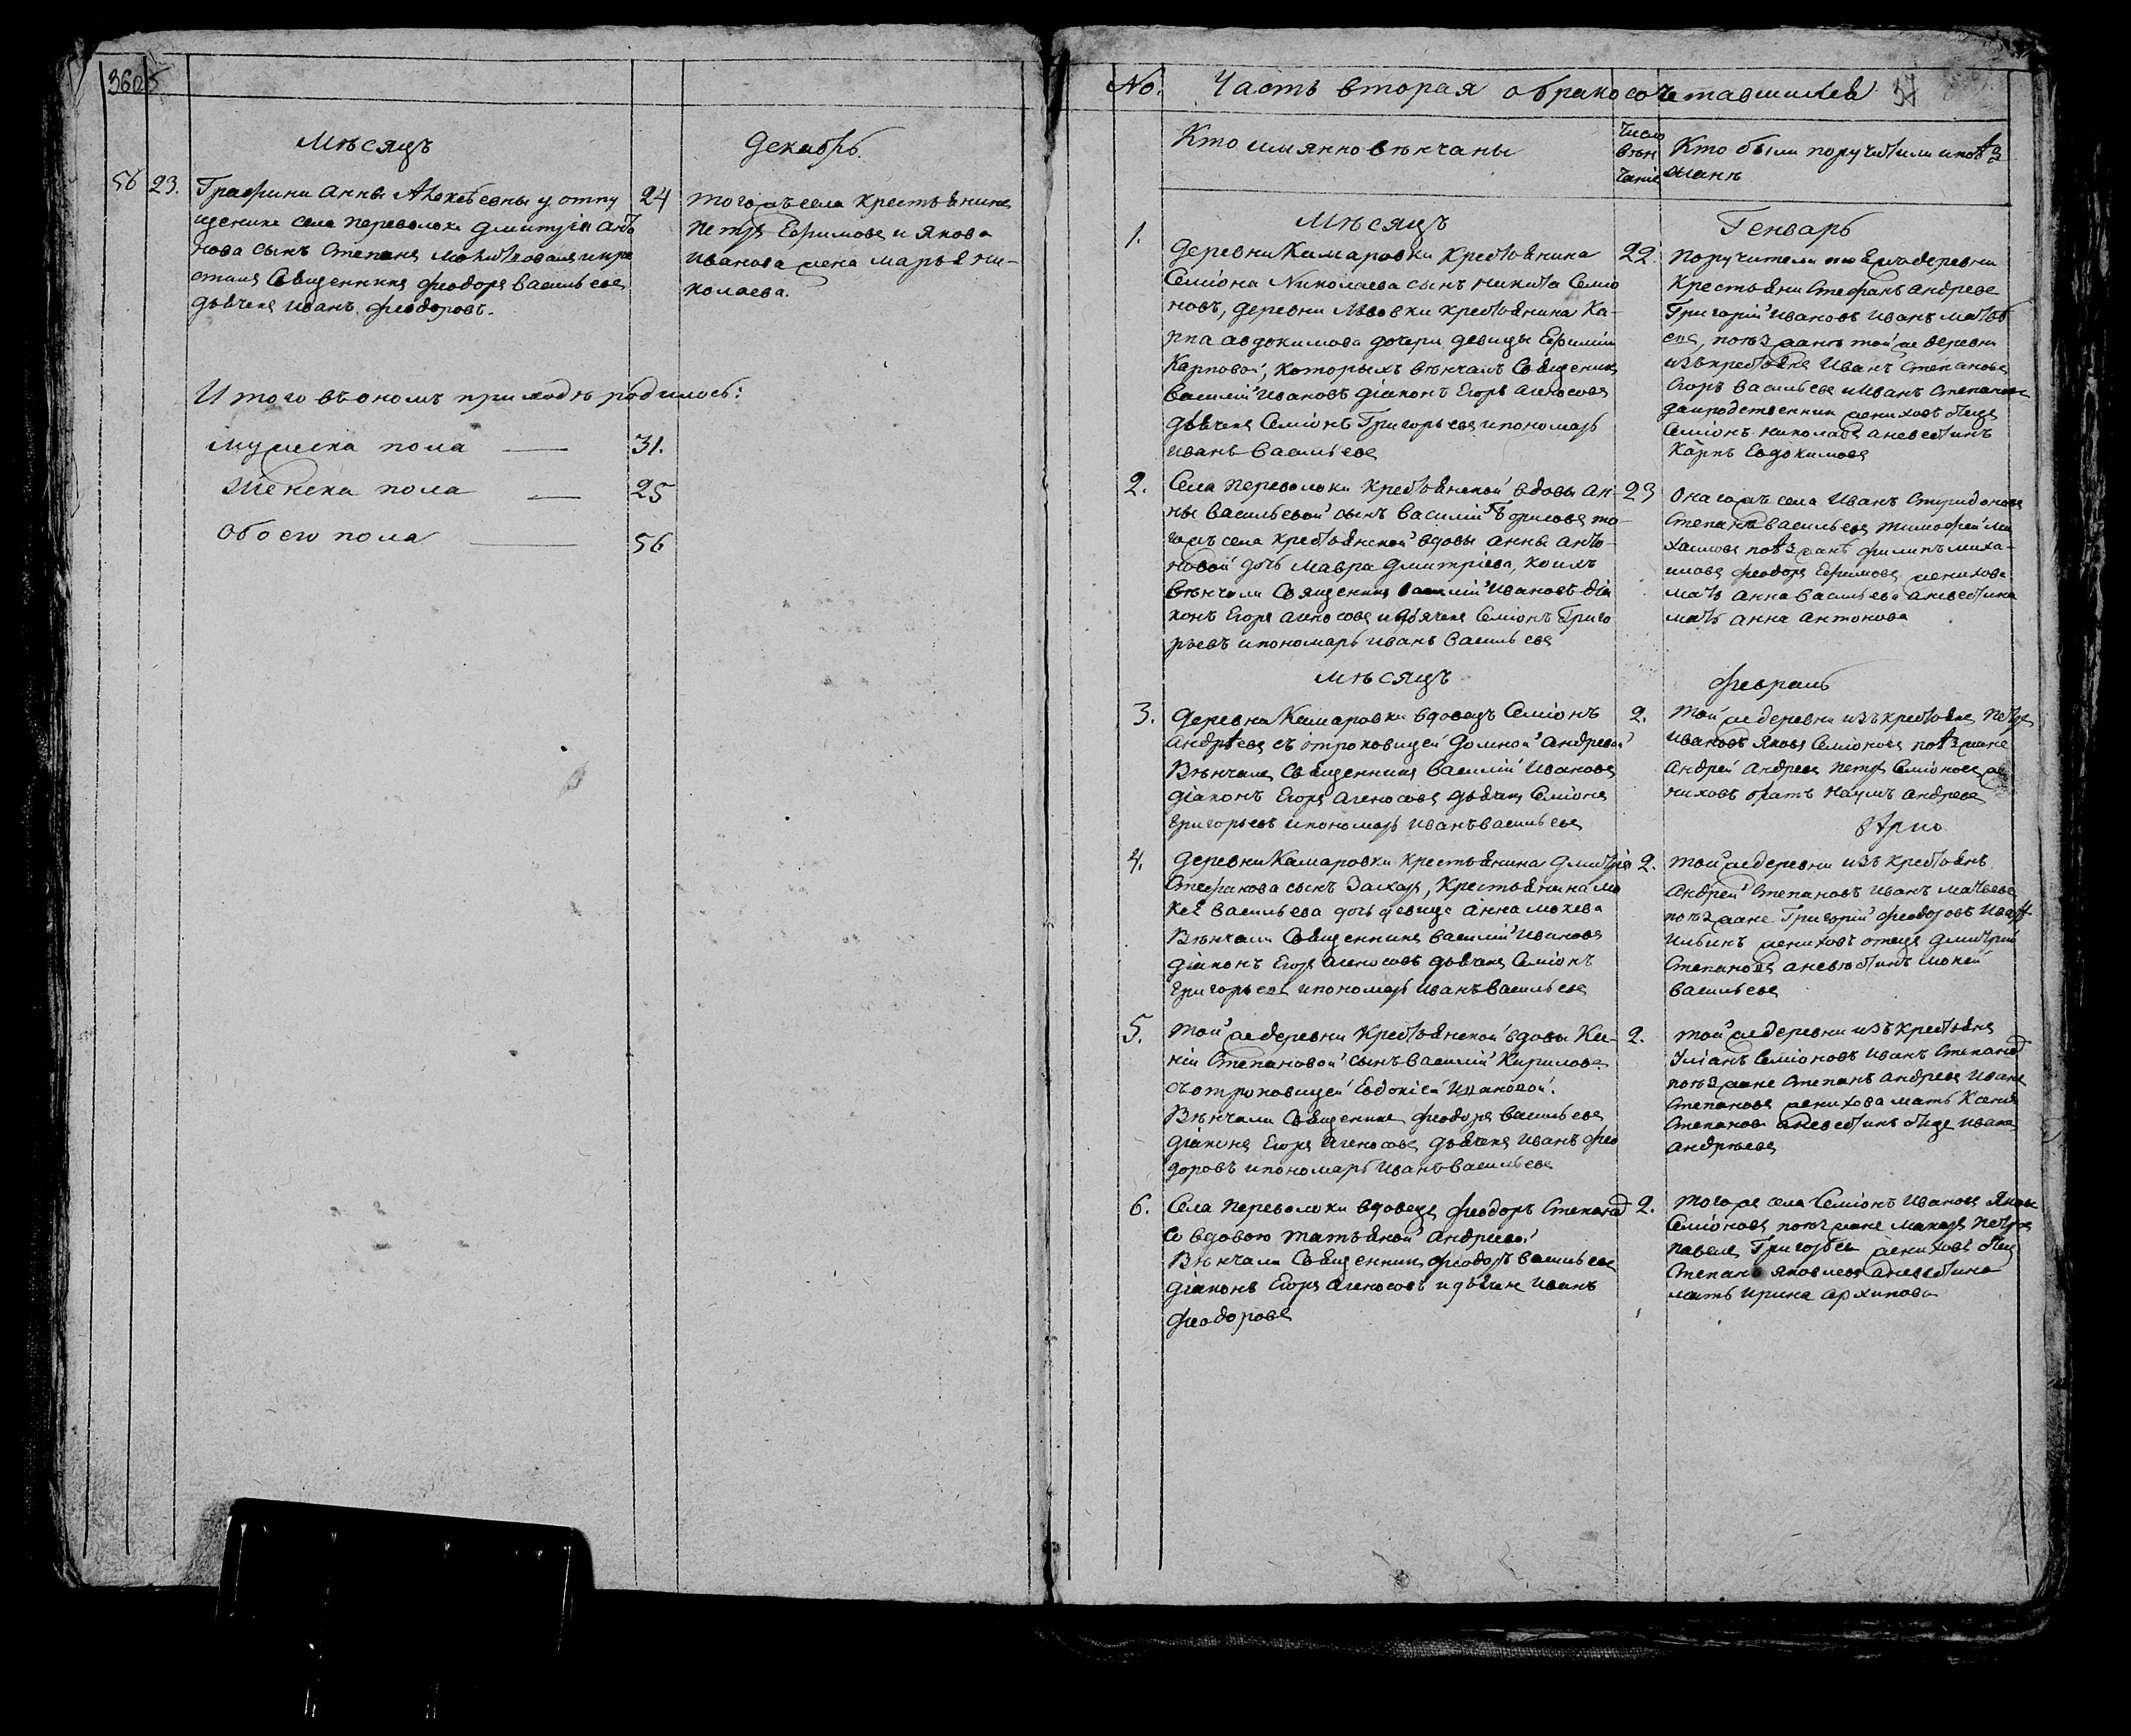 Мѣсяцъ
Декабрь.
56 23. Графини Анны Алексѣевны у отпу
щеника села Переволоки Дмитрія Анто
нова сынъ Степанъ молитвовалъ и кре
стилъ Священникъ Феодоръ Васильевъ
дьячекъ Иванъ Феодоровъ.
24 тогожъ села крестьянинъ
Петръ Ефимовъ и Якова
Иванова жена Марья Ни-
колаева.
Итого въ ономъ приходѣ родилось:
мужеска пола — 31.
женска пола — 25
обоего пола — 56
No. Часть вторая о бракосочетавшихся
Кто имянно вѣнчаны
Число
вѣн
чанія
Кто были поручители и поѣз
жанѣ
Мѣсяцъ
Генварь
1. Деревни Камаровки крестьянина
Семіона Николаева сынъ Никита Семіо
новъ, деревни Львовки крестьянина Ка-
рпа Авдокимова дочери девицы Ефиміи
Карповой, которыхъ вѣнчалъ Священникъ
Василій Ивановъ діаконъ Егоръ Агеносовъ
дьячекъ Семіонъ Григорьевъ и пономарь
Иванъ Васильевъ
22. поручители тоя жъ деревни
Крестьяни Стефанъ Андреевъ
Григорій Ивановъ Иванъ Матвѣ
евъ, поѣзжанѣ той же деревни
изъ крестьянъ Иванъ Степановъ
Егоръ Васильевъ и Иванъ Степановъ
да иродственники жениховъ отецъ
Семіонъ Николаевъ а невестинъ
Карпъ Евдокимовъ
2. Села Переволоки крестьянской вдовы Ан-
ны Васильевой сынъ Василій Борисовъ то-
гожъ села крестьянской вдовы Анны Анто-
новой дочь Мавра Дмитріева, коихъ
вѣнчали Священникъ Василій Ивановъ діа
конъ Егоръ Агеносовъ и дьячекъ Семіонъ Григо
рьевъ и пономарь Иванъ Васильевъ
23 Оногожъ села Иванъ Спиридоновъ
Степанъ Васильевъ Тимофей Ми
хаиловъ поѣзжанѣ Филипъ Миха-
иловъ Феодоръ Ефимовъ женихова
мать Анна Васильева а невестина
мать Анна Антонова
мѣсяцъ
Февраль
3. Деревни Камаровки вдовецъ Семіонъ
Андрѣевъ съ отроковицей Домной Андреевой
Вѣнчалъ Священникъ Василій Ивановъ
діаконъ Егоръ Агеносовъ дьячекъ Семіонъ
Григорьевъ и пономарь Иванъ Васильевъ
2. той же деревни изъ крестьянъ Петръ
Ивановъ Яковъ Семіоновъ поѣзжане
Андрей Андреевъ Петръ Семіоновъ же
ниховъ братъ Наумъ Андреевъ
4. Деревни Камаровки крестьянина Дмитрія
Стефанова сынъ Захаръ, крестьянина Мо
кея Васильева дочь девица Анна Мокева
Вѣнчали Священникъ Василій Ивановъ
діаконъ Егоръ Агеносовъ дьячекъ Семіонъ
Григорьевъ и пономарь Иванъ Васильевъ
2. той же деревни изъ крестьянъ
Андрей Степановъ Иванъ Матвеевъ
поѣзжане Григорій Феодоровъ Иванъ
Ильинъ жениховъ отецъ Дмитрій
Степановъ а невѣстинъ Мокей
Васильевъ
5. той же деревни крестьянской вдовы Ксе-
ніи Степановой сынъ Василій Кириловъ
съ отроковицей Евдокіей Ивановой.
Вѣнчали Священникъ Феодоръ Васильевъ
діаконъ Егоръ Агеносовъ дьячекъ Иванъ Фео
доровъ и пономарь Иванъ Васильевъ
2. той же деревни изъ крестьянъ
Уліанъ Семіоновъ Иванъ Степановъ
поѣзжане Степанъ Андреевъ Иванъ
Степановъ женихова мать Ксенія
Степанова а невестинъ отецъ Иванъ
Андрѣевъ
6. Села Переволоки вдовецъ Феодоръ Степановъ
со вдовою Татьяной Андреевой
Вѣнчали Священникъ Феодоръ Васильевъ
діаконъ Егоръ Агеносовъ и дьячекъ Иванъ
Феодоровъ
2. того же села Семіонъ Ивановъ Яковъ
Семіоновъ поѣзжане Макаръ Петровъ
Павелъ Григорьевъ жениховъ отецъ
Степанъ Яковлевъ а невестина
мать Ирина Архипова